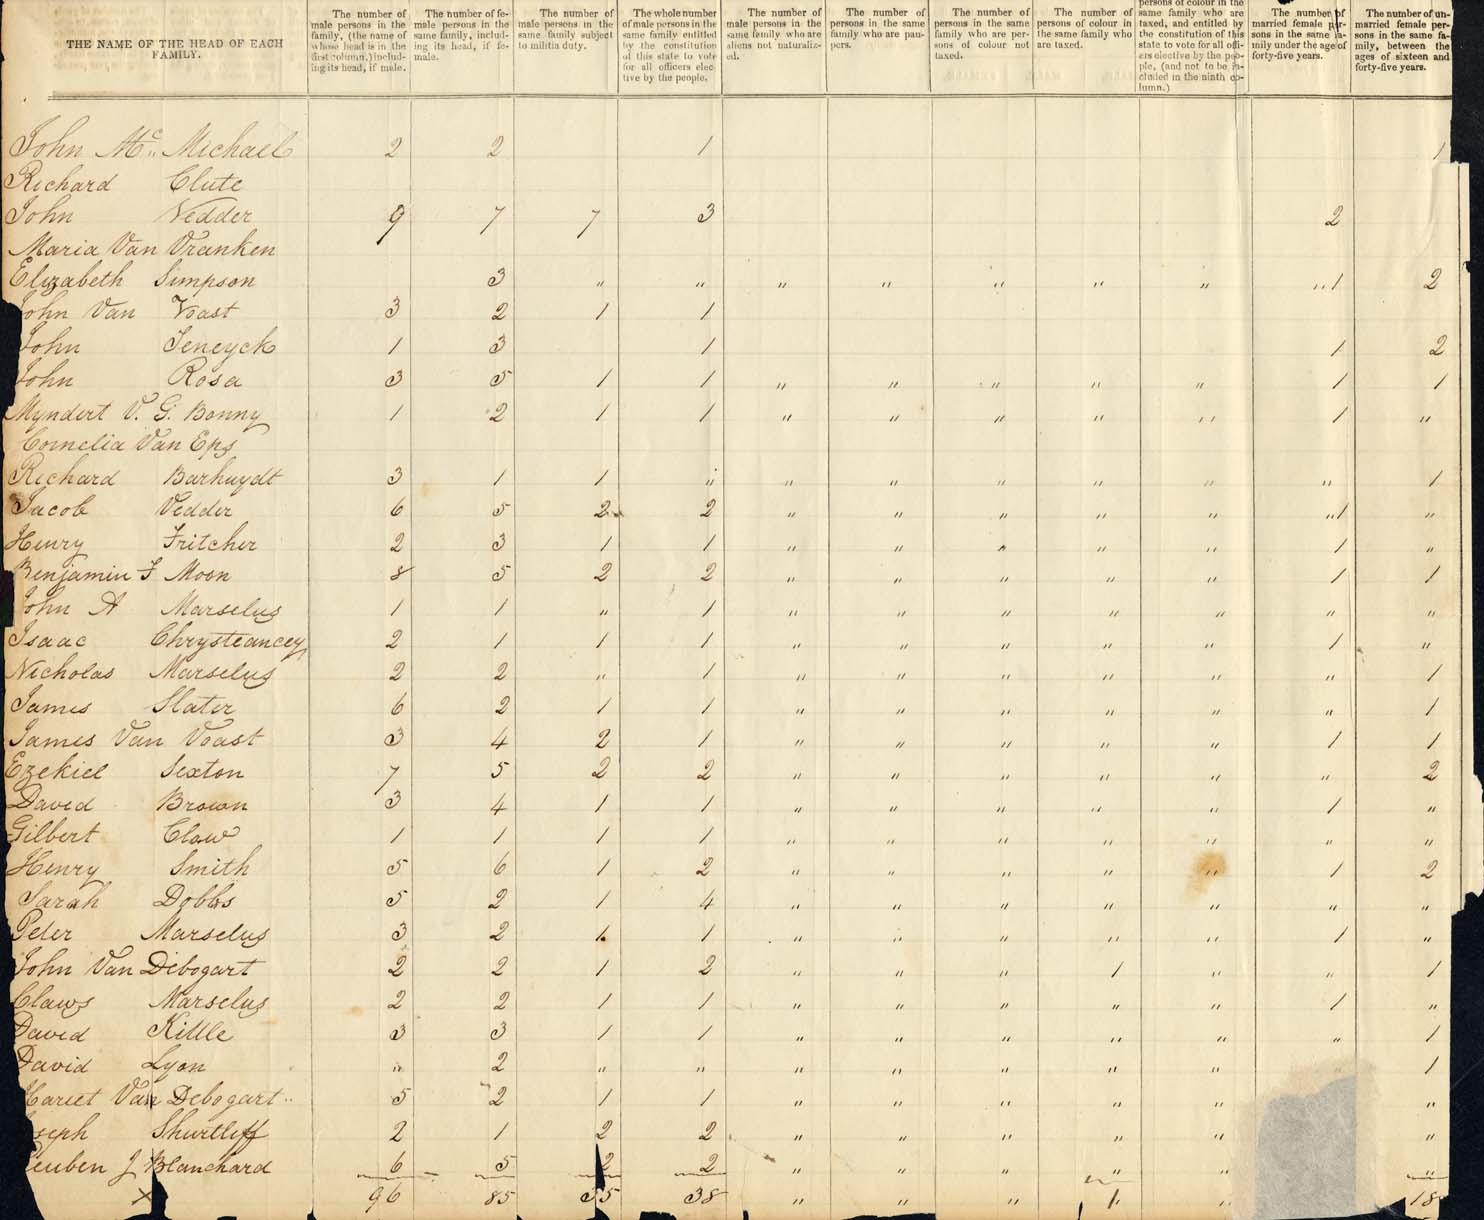 THE NAME OF THE HEAD OF EACH
FAMILY.
The number of
male persons in the
family, (the name of
whose head is in the
first column,) includ-
ing its head, if male.
The number of fe-
male persons in the
same family, includ-
ing its head, if fe-
male.
The number of
male persons in the
same family subject
to militia duty.
The whole number
of male persons in the
same family entitled
by the constitution
of this state to vote
for all officers elec
tive by the people.
male persons in the
same family who are
aliens not naturaliz-
ed.
persons in the same
family who are pau-
pers.
persons in the same
family who are per-
sons of colour not
taxed.
The number of
persons of colour in
the same family who
are taxed.
persons of colour in the
same family who are
taxed, and entitled by
the constitution of this
state to vote for all offi-
cers elective by the peo-
ple, (and not to be in-
cluded in the ninth co-
lumn.)
The number of
married female per-
sons in the same fa-
mily under the age of
forty-five years.
The number of un-
married female per-
sons in the same fa-
mily, between the
ages of sixteen and
forty-five years.
John Mc Michael 2 2 1 1
Richard Clute
John Vedder 9 7 7 3 2
Maria Van Vranken
Elizabeth Simpson 3 " " " " " " " " 1 2
John Van Voast 3 2 1 1
John Teneyck 1 3 1 1 2
John Rosa 3 5 1 1 " " " " " 1 1
Myndert V. G. Bonny 1 2 1 1 " " " " " 1 "
Cornelia Van Eps
Richard Barhuydt 3 1 1 " " " " " " " 1
Jacob Vedder 6 5 2 2 " " " " " " 1 "
Henry Fritcher 2 3 1 1 " " " " " 1 "
Benjamin F Moon 8 5 2 2 " " " " " 1 1
John A Marselus 1 1 " 1 " " " " " " "
Isaac Chrysteancey 2 1 1 1 " " " " " 1 "
Nicholas Marselus 2 2 " 1 " " " " " " 1
James Slater 6 2 1 1 " " " " " " 1
James Van Voast 3 4 2 1 " " " " " 1 1
Ezekiel Sexton 7 5 2 2 " " " " " " 2
David Brown 3 4 1 1 " " " " " 1 "
Gilbert Claw 1 1 1 1 " " " " " " "
Henry Smith 5 6 1 2 " " " " " 1 2
Sarah Dobbs 5 2 1 4 " " " " " " "
Peter Marselus 3 2 1 1 " " " " " 1 "
John Van Debogart 2 2 1 2 " " " 1 " " 1
Claws Marselus 2 2 1 1 " " " " " 1 "
David Kittle 3 3 1 1 " " " " " " 1
David Lyon " 2 " " " " " " " " 1
Hariet Van Debogart 5 2 1 1 " " " " " "
seph Shurtliff 2 1 2 2 " " " " " "
euben J Blanchard 6 5 2 2 " " " " " "
x 96 85 35 38 " " " 1 " 18